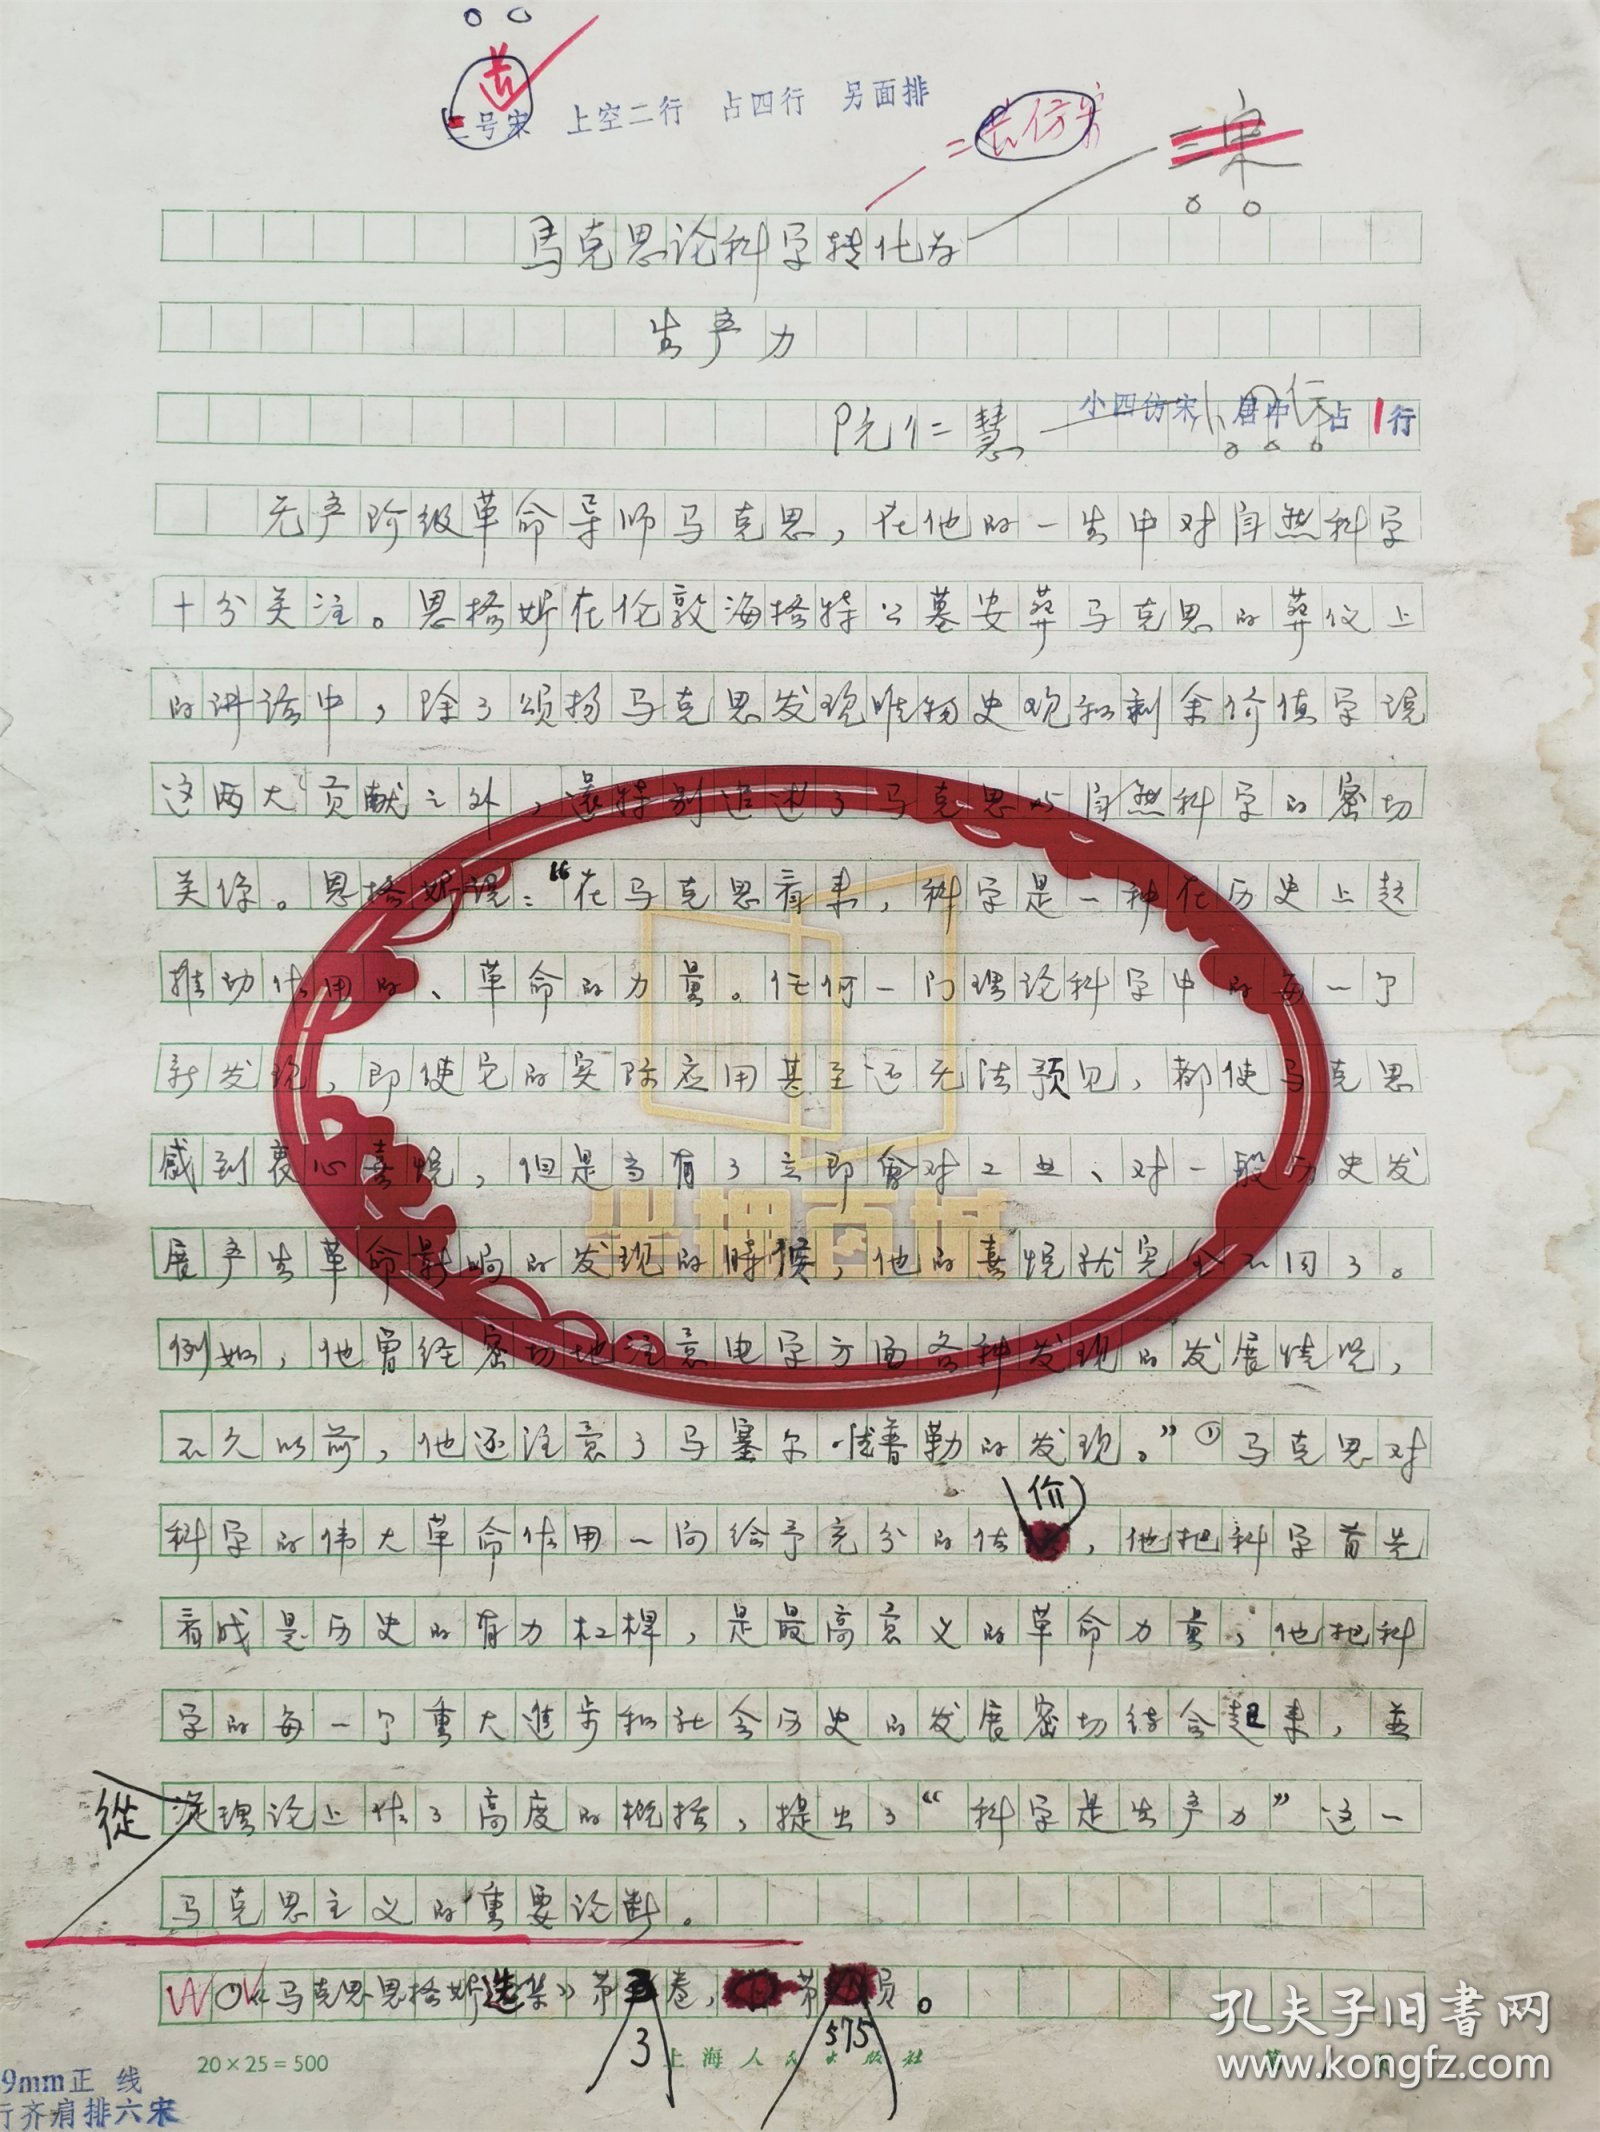 二号宋 上空二行 占四行 另面排
二长仿宋
二宋
马克思论科学转化为
生产力
阮仁慧
小四仿宋 居中 占1行
无产阶级革命导师马克思，在他的一生中对自然科学
十分关注。恩格斯在伦敦海格特公墓安葬马克思的葬仪上
的讲话中，除了颂扬马克思发现唯物史观和剩余价值学说
这两大贡献之外，还特别追述了马克思与自然科学的密切
关系。恩格斯说：“在马克思看来，科学是一种在历史上起
推动作用的、革命的力量。任何一门理论科学中的每一个
新发现，即使它的实际应用甚至还无法预见，都使马克思
感到衷心喜悦，但是当有了立即会对工业、对一般历史发
展产生革命影响的发现的时候，他的喜悦就完全不同了。
例如，他曾经密切地注意电学方面各种发现的发展情况，
不久以前，他还注意了马塞尔·德普勒的发现。”①马克思对
科学的伟大革命作用一向给予充分的估价，他把科学首先
看成是历史的有力杠杆，是最高意义的革命力量，他把科
学的每一个重大进步和社会历史的发展密切结合起来，并
從理论上作了高度的概括，提出了“科学是生产力”这一
马克思主义的重要论断。
①《马克思恩格斯选集》第3卷，第575页。
20×25=500
上海人民出版社
9mm正线
行齐肩排六宋
孔夫子旧书网
www.kongfz.com